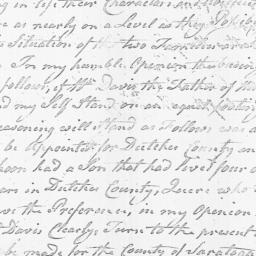 in life their Characters and
are as nearly on a Level as they Possibly
Situation of the two Families are
In my humble Opinion the
follows, if Mr Davis the Father of the
and my Self Stand on an equal footing
reasoning will Stand as Follows was a
be Appointed for Dutches County, an
whom had a Son that had lived four
ears in Dutches County, Quere who
have the Preference, in my Openion
Davis Clearly; Turn to the present
be made for the County of Saratoga